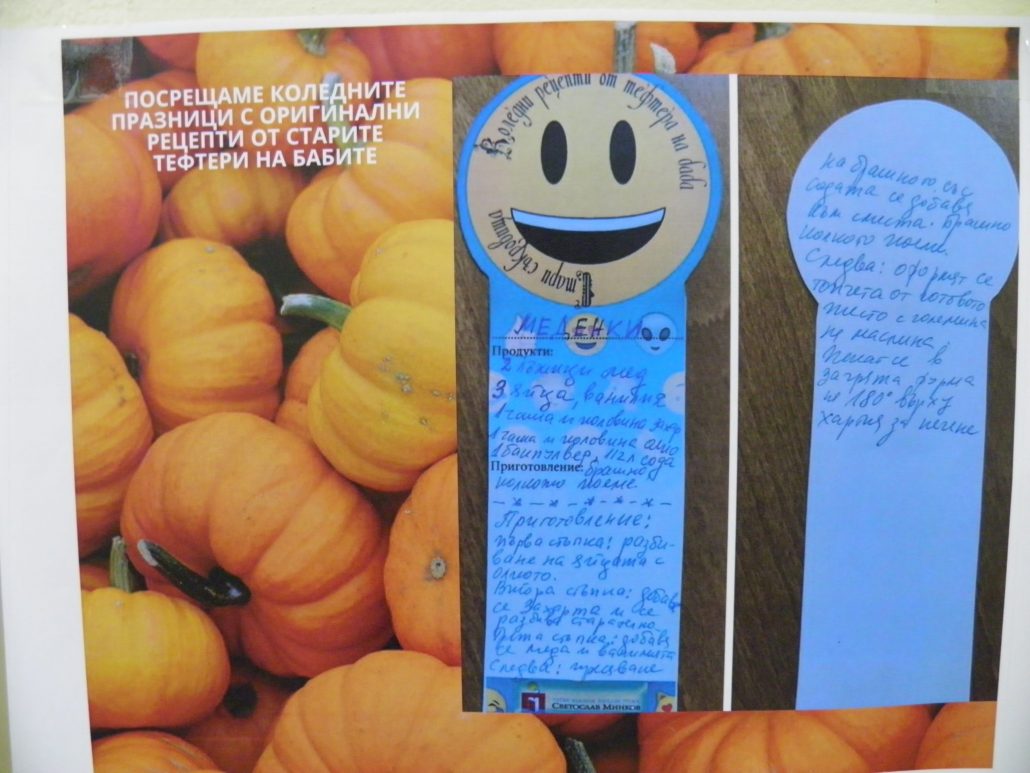 ПОСРЕЩАМЕ КОЛЕДНИТЕ
ПРАЗНИЦИ С ОРИГИНАЛНИ
РЕЦЕПТИ ОТ СТАРИТЕ
ТЕФТЕРИ НА БАБИТЕ
Коледни рецепти от тефтера на баба
Стари съкровища
МЕДЕНКИ
Продукти:
2 лъжици мед
3 яйца, ванилия
1 чаша и половина захар
1 чаша и половина олио
1 бакпулвер, 1/2 л сода
Приготовление: брашно,
колкото поеме
Приготовление:
първа стъпка: разби-
ване на яйцата с
олиото.
Втора стъпка: добавя
се захарта и се
разбива старателно
стъпка: добавя
се меда и ванилията
Следва: пресяване
СВЕТОСЛАВ МИНКОВ
на брашното със
содата се добавя
към сместа. Брашно
колкото поеме.
Следва: оформят се
топчета от готовото
тесто с големина
на маслина,
Пекат се в
загрята фурна
на 180° върху
хартия за печене